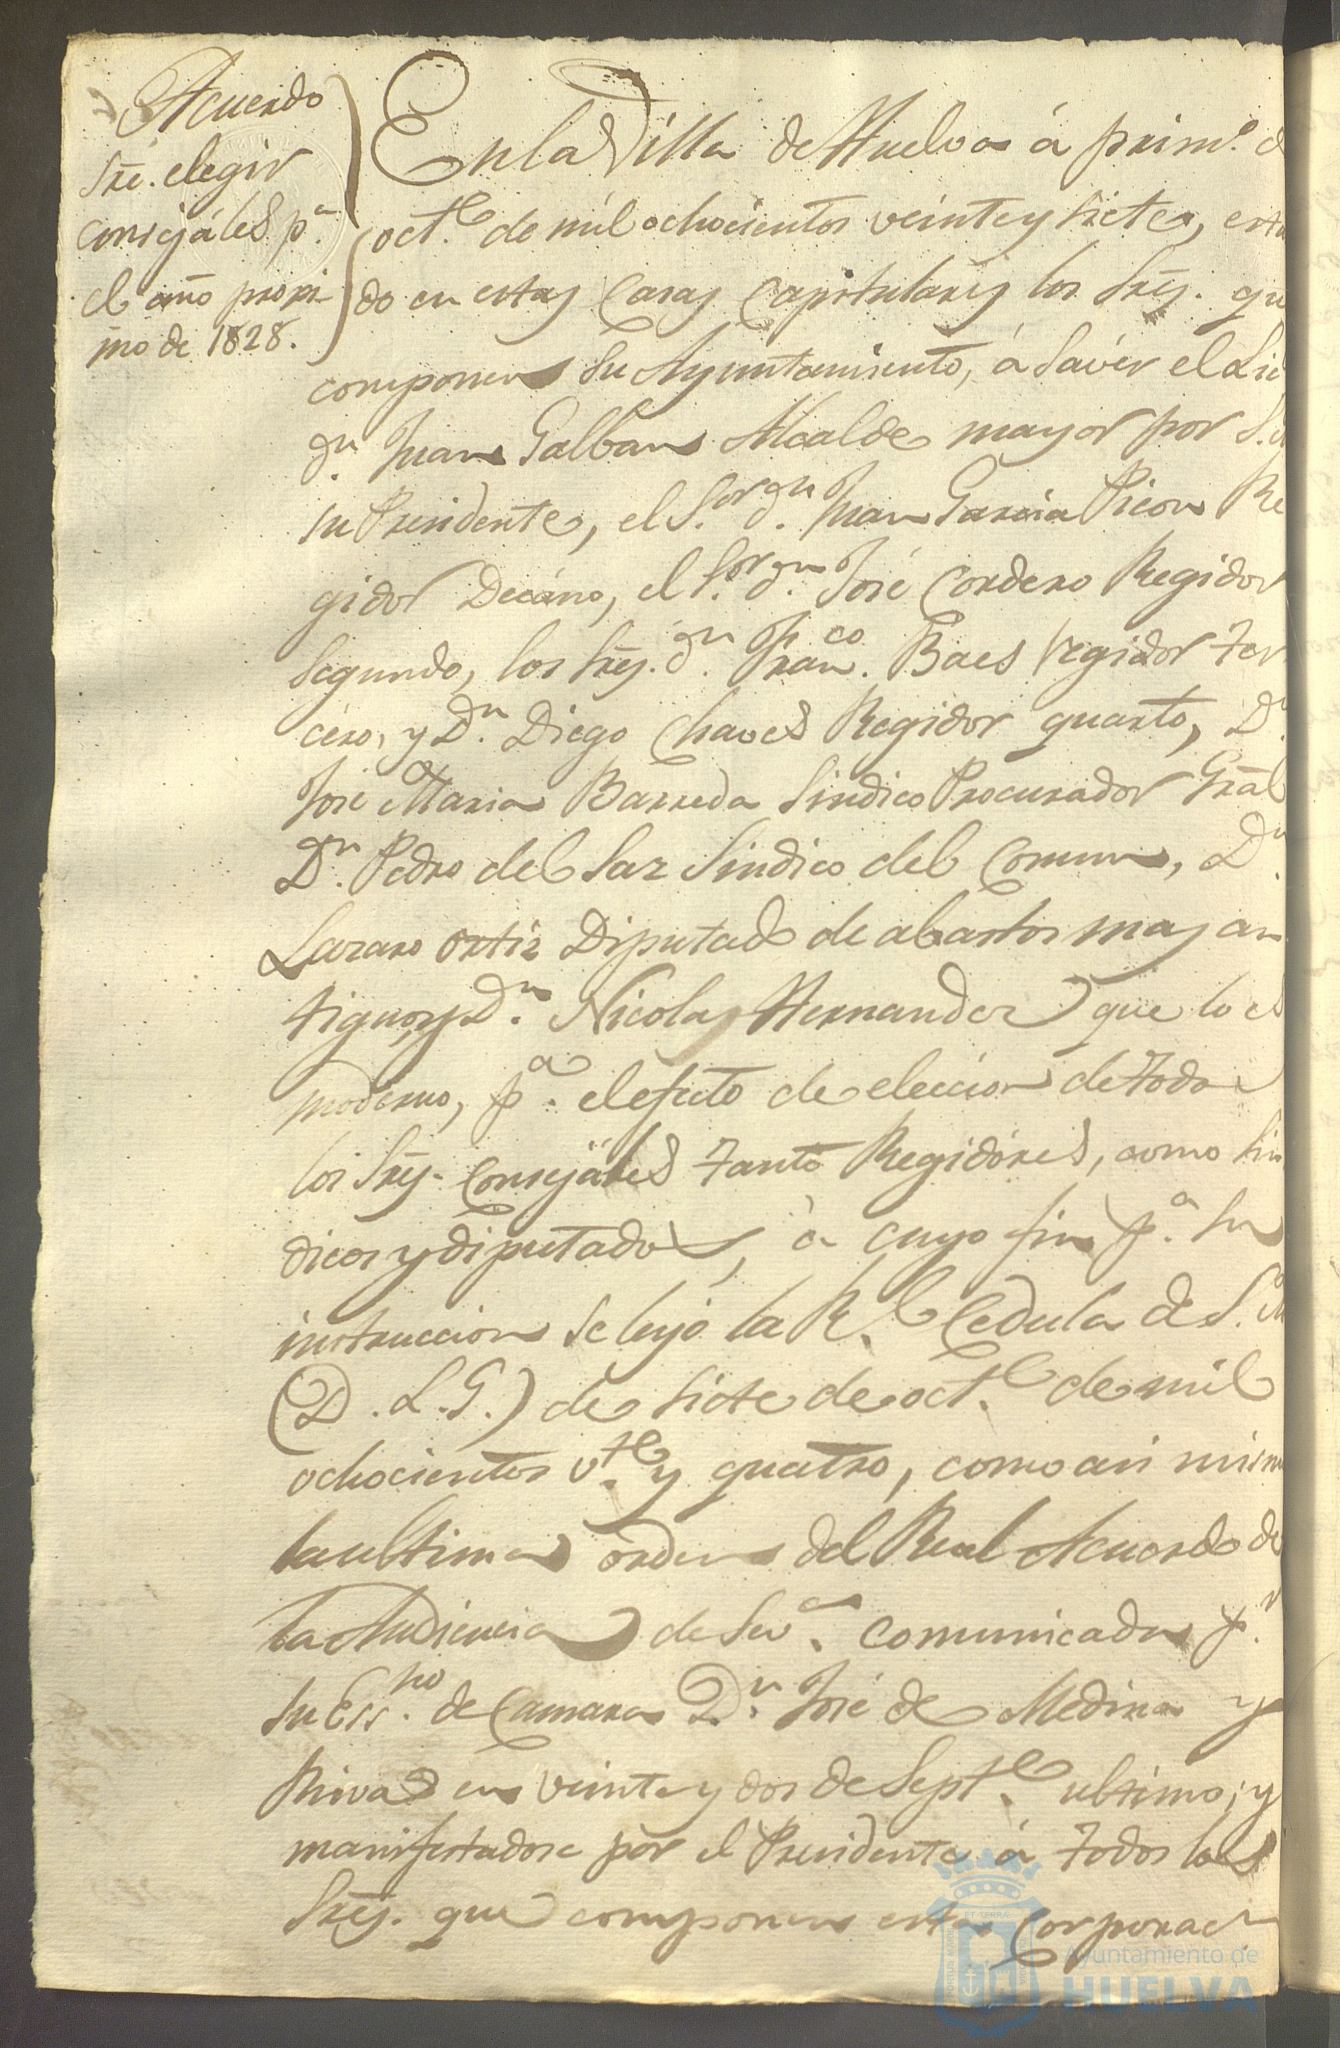 Acuerdo
sre. elegir
consejáles pa.
el año procsi
mo de 1828.
En la Villa de Huelva á prim.o d
oct.e de mil ochocientos veinte y siete, esta
do en estas Casas Capitulares los Sres. que
componen su Ayuntamiento, á savér el Lic
dn. Juan Galban Alcalde mayor por S.M
su Presidente, el S.or dn. Juan Garcia Picon Re
gidor Decáno, el S.or dn. José Cordero Regidor
segundo, los Sres. dn. Franco. Baes Regidor ter
céro, y Dn. Diego Chaves Regidor quarto, Dn.
José Maria Barreda Sindico Procurador Gral
Dn. Pedro del Saz Sindico del Comun, Dn.
Lazaro Ortiz Diputado de abastos mas an
tiguo, y Dn. Nicolas Hernandez que lo es
moderno, pa. el efecto de eleccion de todos
los Sres. Consejáles tanto Regidóres, como Sin
dicos y diputados, á cuyo fin pa. su
instruccion se leyó la Rl. Cedula de S.M
(D. L. G.) de siete de oct.e de mil
ochocientos vte. y quatro, como asi mismo
la ultima orden del Real Acuerdo de
la Audiencia de Seva. comunicada pr.
su Essno. de Camara Dn. José de Medina y
Rivas en veinte y dos de Septe. ultimo; y
manifestadose por el Presidente á todos los
Sres. que componen esta Corporacn
Ayuntamiento de
HUELVA